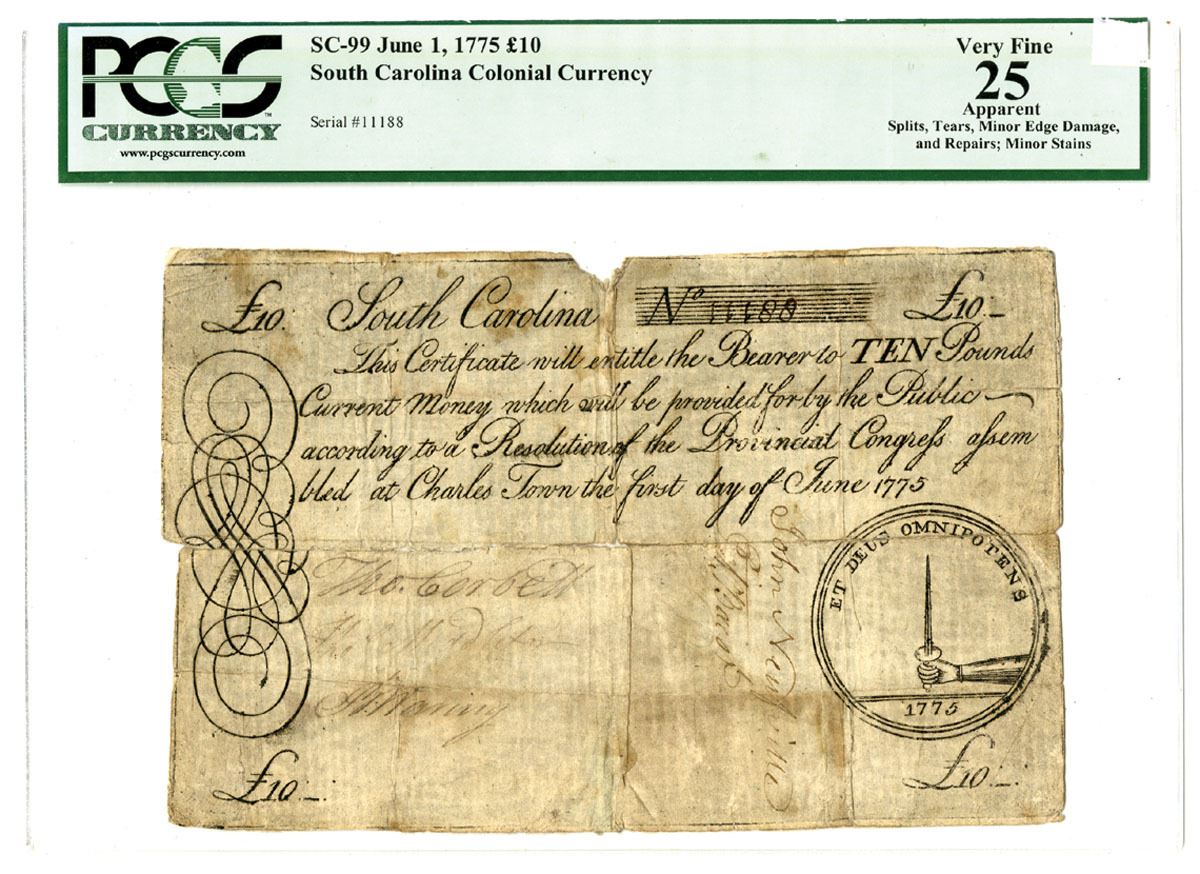 PCGS
CURRENCY
www.pcgscurrency.com
SC-99 June 1, 1775 £10
South Carolina Colonial Currency
Serial #11188
Very Fine
25
Apparent
Splits, Tears, Minor Edge Damage,
and Repairs; Minor Stains
£10. South Carolina No 11188 £10.–
This Certificate will entitle the Bearer to TEN Pounds
Current Money which will be provided for by the Public
according to a Resolution of the Provincial Congress assem
bled at Charles Town the first day of June 1775
Tho. Corbett
John Neufville
ET DEUS OMNIPOTENS
1775
£10.–.
£10.–.